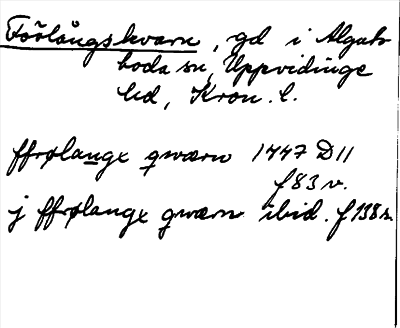 Förlångskvarn, gd i Alguts-
boda sn, Uppvidinge
hd, Kron. l.
ffrølange qwærn 1447 D 11
f 83 v.
j ffrølange qwærn ibid. f 138 r.